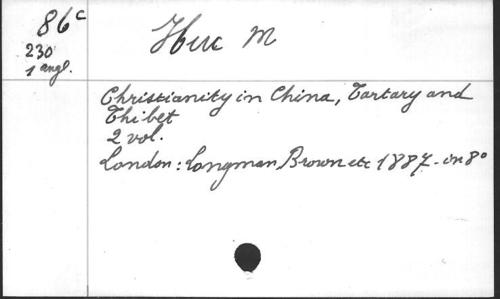 86c
230
1 angl.
Huc M
Christianity in China, Tartary and
Thibet
2 vol.
London: Longman, Brown etc 1887 - in 8º